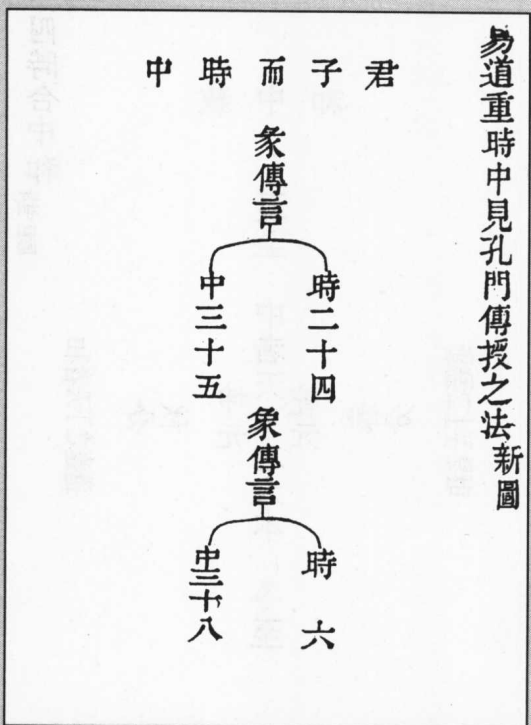 易道重時中見孔門傳授之法新圖
君子而時中
彖傳言
時二十四
中三十五
象傳言
時六
中三十八